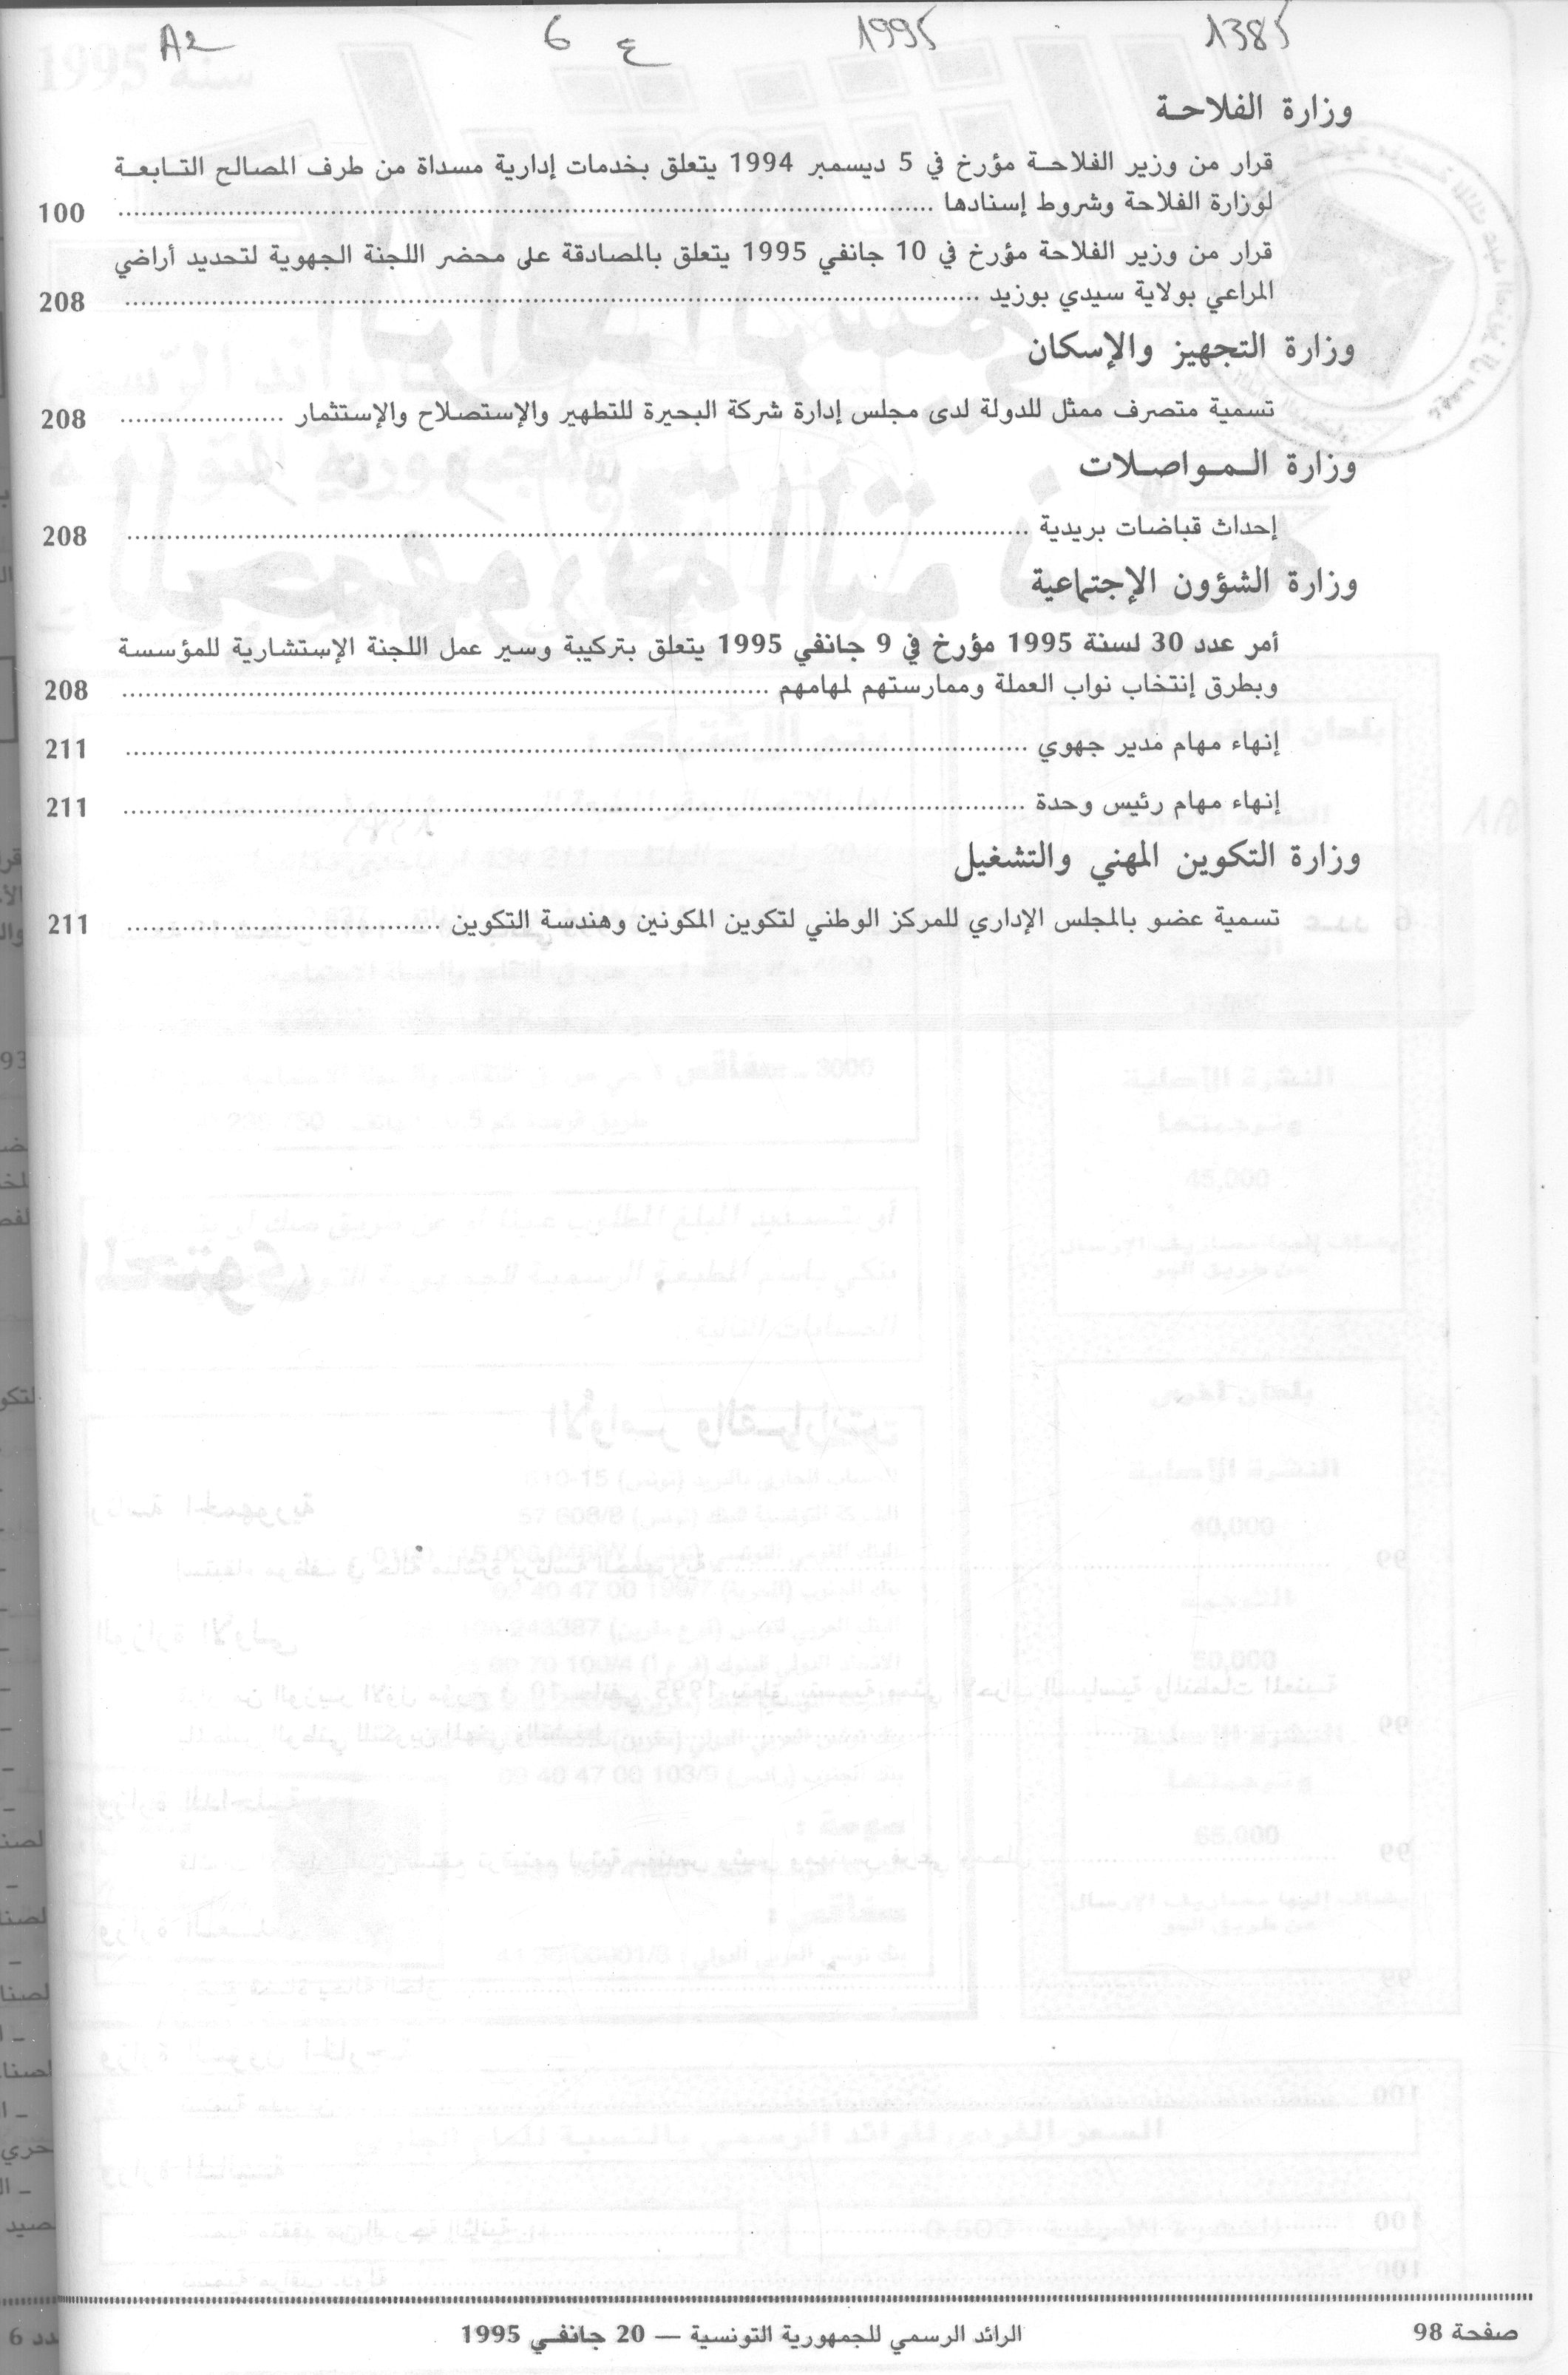 1385 1995 ع 6 A2
وزارة الفلاحة
قرار من وزير الفلاحة مؤرخ في 5 ديسمبر 1994 يتعلق بخدمات إدارية مسداة من طرف المصالح التابعة
لوزارة الفلاحة وشروط إسنادها ........ 100
قرار من وزير الفلاحة مؤرخ في 10 جانفي 1995 يتعلق بالمصادقة على محضر اللجنة الجهوية لتحديد أراضي
المراعي بولاية سيدي بوزيد ........ 208
وزارة التجهيز والإسكان
تسمية متصرف ممثل للدولة لدى مجلس إدارة شركة البحيرة للتطهير والإستصلاح والإستثمار ........ 208
وزارة المواصلات
إحداث قباضات بريدية ........ 208
وزارة الشؤون الإجتماعية
أمر عدد 30 لسنة 1995 مؤرخ في 9 جانفي 1995 يتعلق بتركيبة وسير عمل اللجنة الإستشارية للمؤسسة
وبطرق إنتخاب نواب العملة وممارستهم لمهامهم ........ 208
إنهاء مهام مدير جهوي ........ 211
إنهاء مهام رئيس وحدة ........ 211
وزارة التكوين المهني والتشغيل
تسمية عضو بالمجلس الإداري للمركز الوطني لتكوين المكونين وهندسة التكوين ........ 211
صفحة 98 الرائد الرسمي للجمهورية التونسية — 20 جانفي 1995